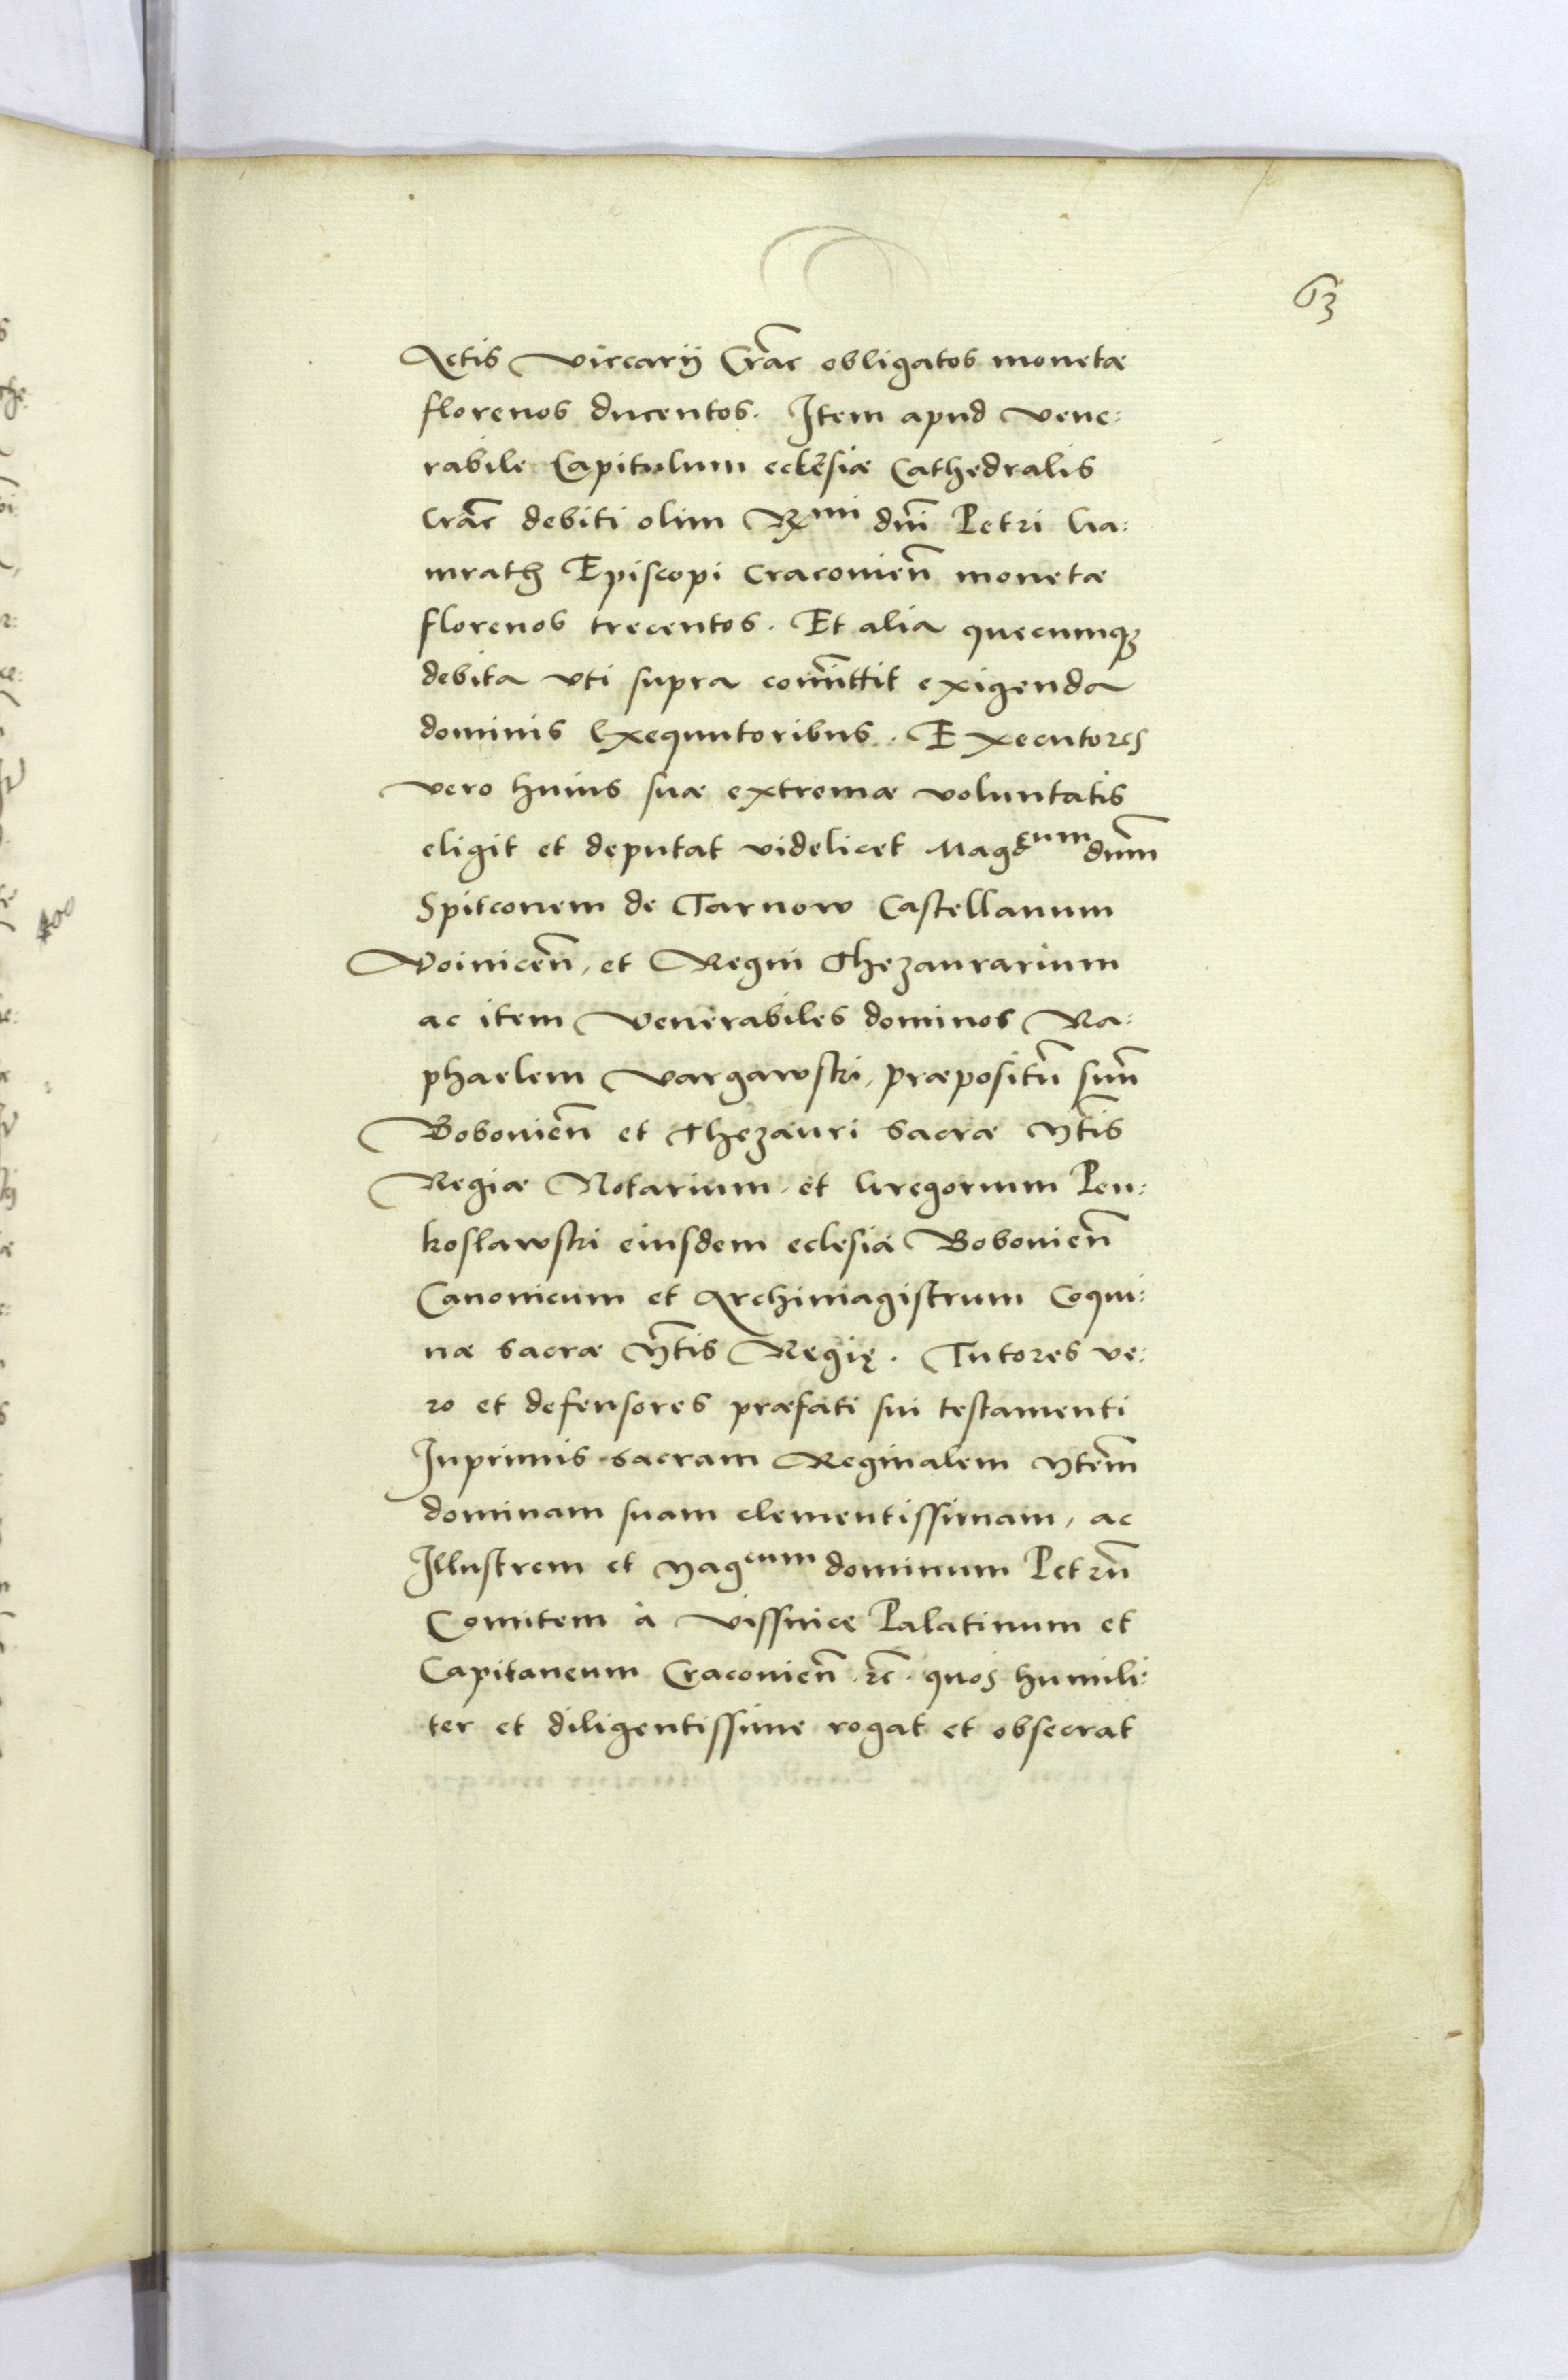 63
Actis Viccarij Crac̄ obligatos monetæ
florenos ducentos. Item apud Vene:
rabile Capitulum eccłesiæ Cathedralis
Crac̄ debiti olim Rmi dn̄i Petri Ga:
mrath Episcopi Cracouien̄ monetæ
florenos trecentos. Et alia quecumqȝ
debita vti supra com̄ittit exigenda
dominis Exequutoribus. Executores
vero huius suæ extremæ voluntatis
eligit et deputat videlicet Magcum dn̄m
Spitconem de Tarnow Castellanum
Voinicen̄, et Regni Thezaurarium
ac item Venerabiles dominos Ra:
phaelem Vargawski, præpositū suū
Bobouien̄ et Thezauri Sacræ Mt̄is
Regiæ Notarium, et Gregorium Pen:
koslawski eiusdem eclesiæ Bobouien̄
Canonicum et Archimagistrum Coqui:
næ Sacræ Mt̄is Regię. Tutores ve:
ro et defensores præfati sui testamenti
Inprimis sacram Reginalem Mtēm
dominam suam clementissimam, ac
Illustrem et Magcum dominum Petrū
Comitem à Vissnice Palatinum et
Capitaneum Cracouien̄ .rc̄. quos humili:
ter et diligentissime rogat et obsecrat
400